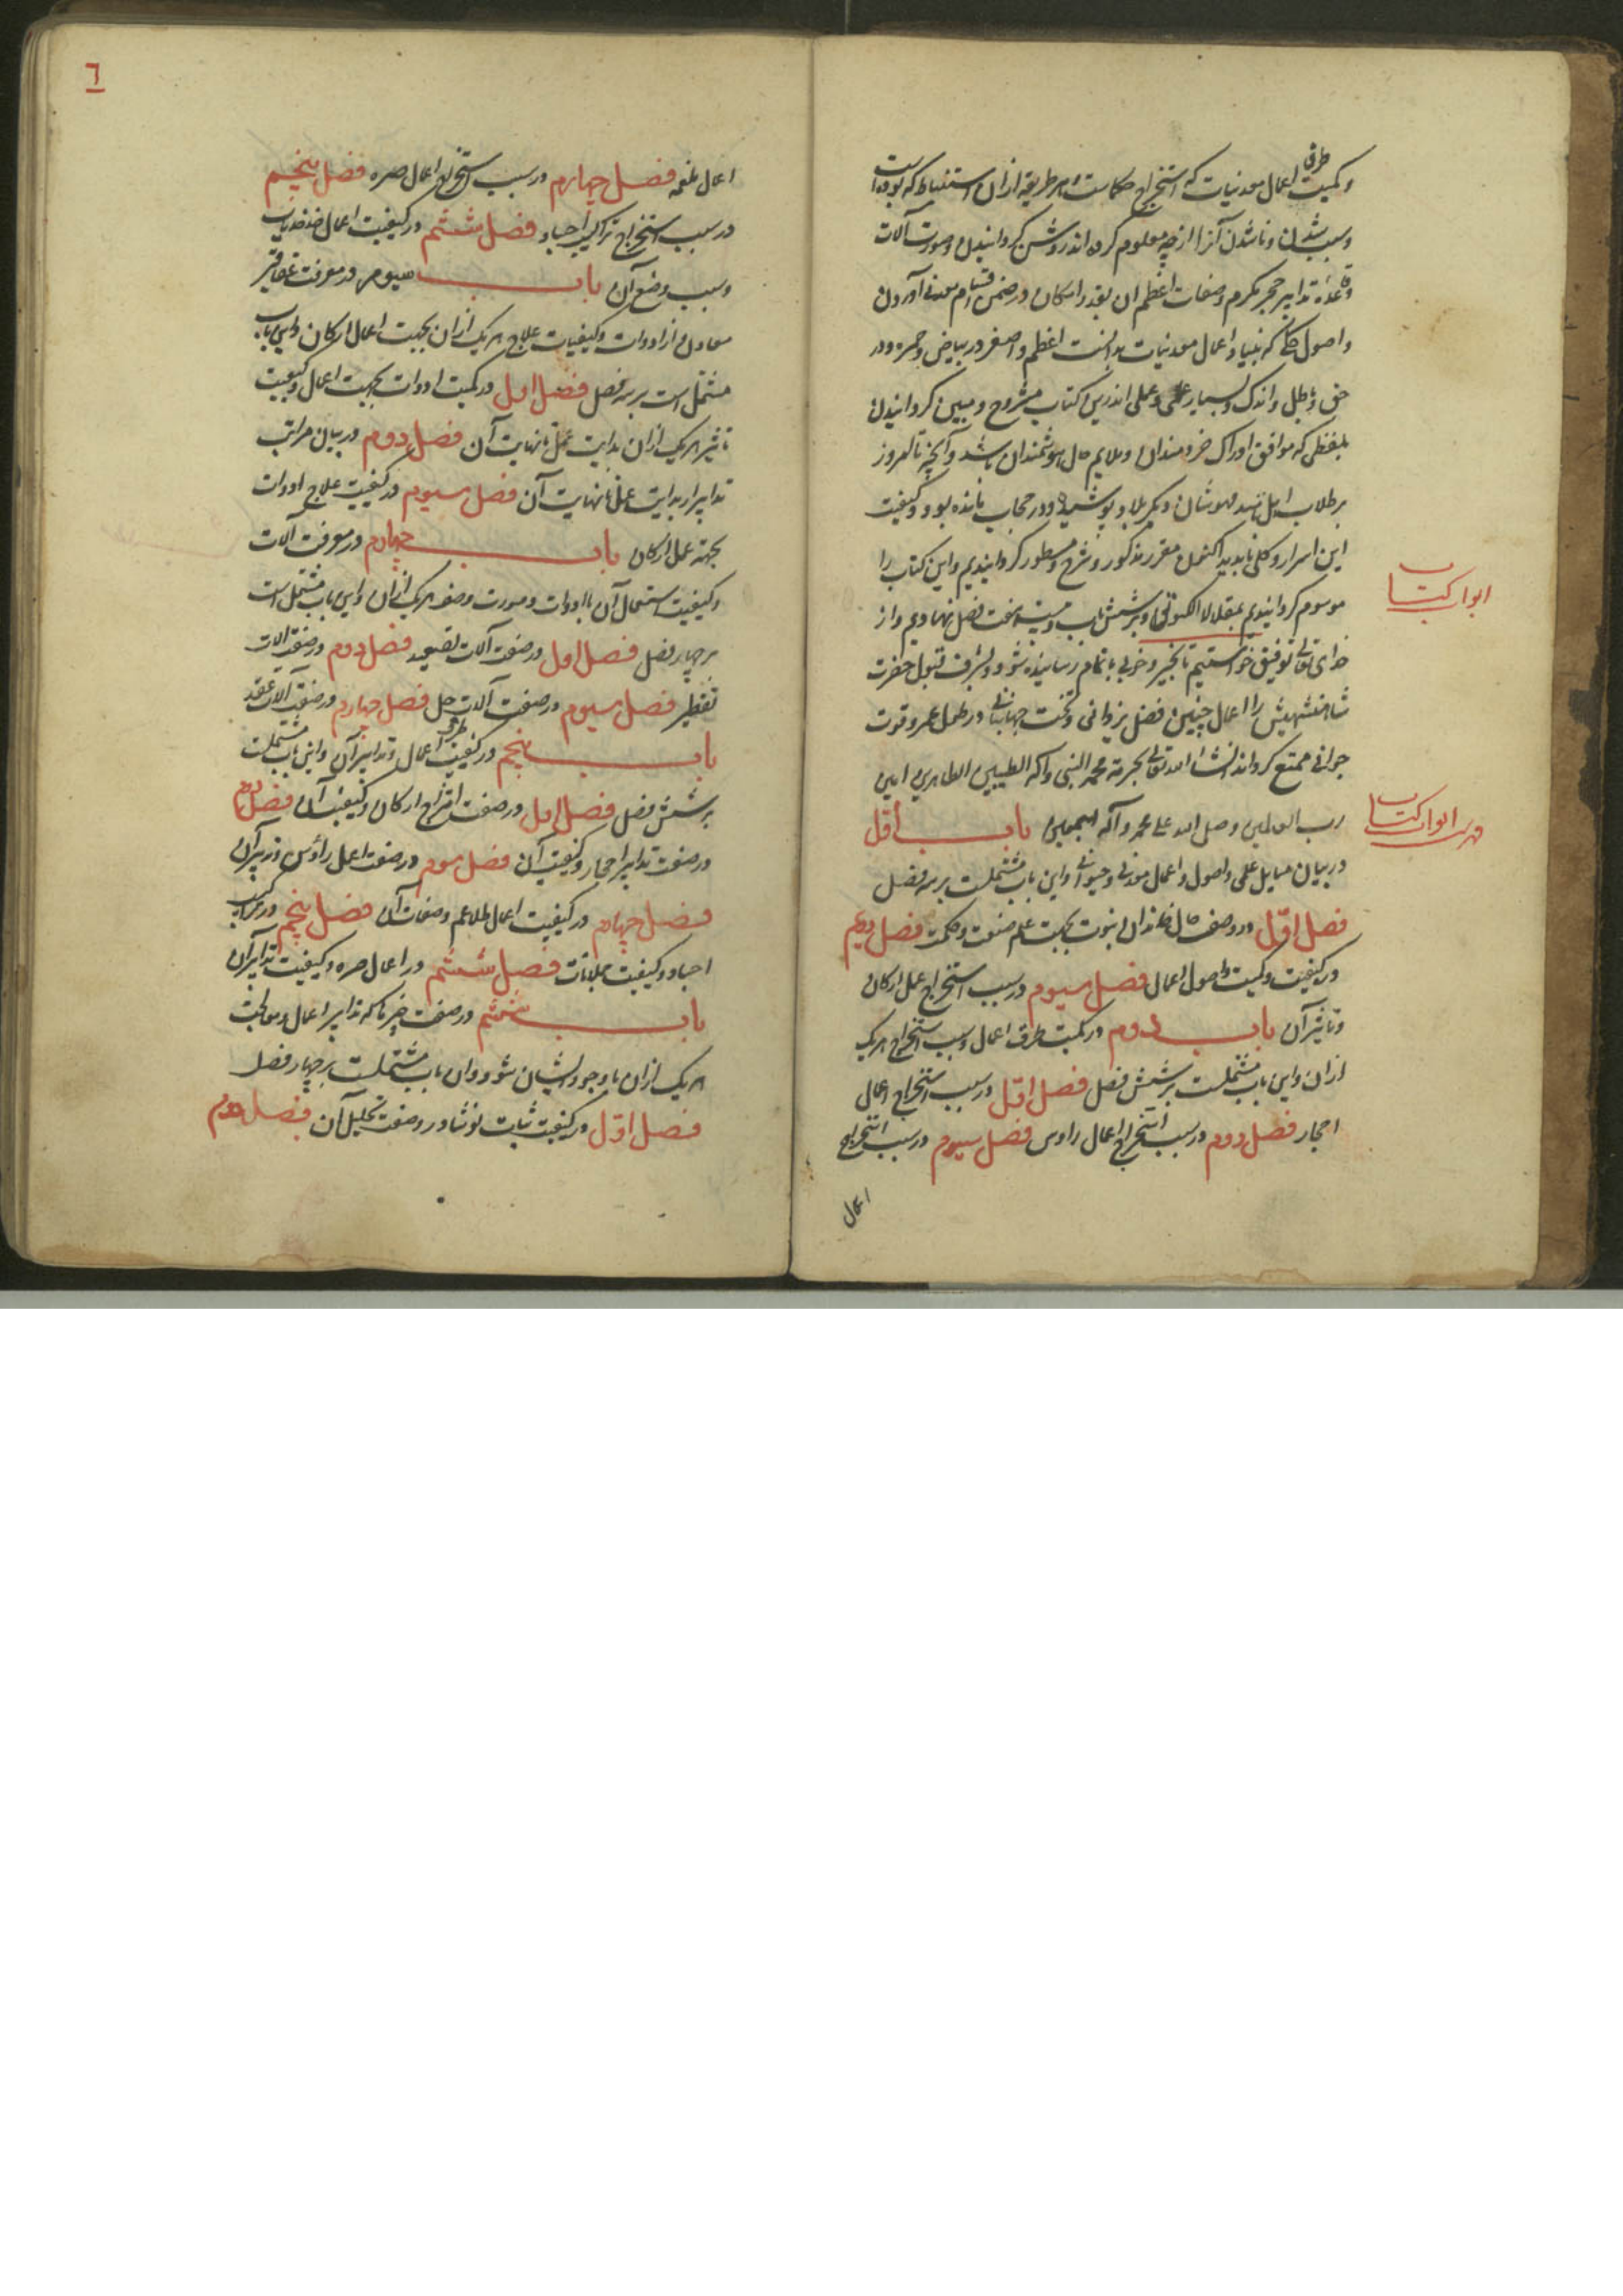 وکمیت طرق اعمال معدنیات که استخراج حکماست و هر طریقه ازان استنباط که بوده است
وسبب شدن و ناشدن آنرا از چه معلوم کرده اند روشن گردانیدن وصورت آلات
وقاعده تدابیر حجر مکرم وصفات اعظم ان بقدر امکان در ضمن اقسام معدنی آوردن
واصول حکمی که بنیاد اعمال معدنیات بدانست اعظم واصغر در بیاض وحمره ودر
حق وباطل واندک وبسیار علمی وعملی اندرین کتاب مشروح ومبین گردانیدن
بلفظی که موافق ادراک خردمندان وملایم حال هوشمندان باشد وآنچه تا امروز
برطلاب پوشیده ودر حجاب مانده بود وکیفیت
این اسرار وکلی مقرر مذکور ومشرح ومسطور گردانیدیم واین کتاب را
موسوم گردانیدیم وبر شش باب وبیست وهفت فصل نهادیم واز
خدای تعالی توفیق خواستیم تا بخیر وخوبی باتمام رسانیده شود وبشرف قبول حضرت
شاهنشهیش را اعمال چنین فضل یزدانی وتخت جهانبانی در طول عمر وقوت
جوانی ممتع گرداند انشا الله تعالی بحرمة محمد النبی وآله الطیبین الطاهرین امین
رب العالمین وصلی الله علی محمد وآله اجمعین باب اول
در بیان مسایل علمی واصول واعمال معدنی وحیوانی واین باب مشتملست بر سه فصل
فصل اول در وصف حال خاندان نبوت بجهت علم صنعت وحکمت فصل دویم
در کیفیت وکمیت واصول اعمال فصل سیوم در سبب استخراج عمل ارکان
وتاثیر آن باب دوم در کمیت طرق اعمال وسبب استخراج هر یک
ازان واین باب مشتملست بر شش فصل فصل اول در سبب استخراج اعمال
احجار فصل دوم در سبب استخراج اعمال راوس فصل سیوم در سبب استخراج
اعمال
ابواب کتاب
فهرست ابواب کتاب
٦
اعمال ملغمه فصل چهارم در سبب استخراج اعمال صره فصل پنجم
در سبب استخراج تراکیب اجساد فصل ششم در کیفیت اعمال
وسبب وضع آن باب سیوم در معرفت عقاقیر
معادن از ادوات وکیفیات علاج هر یک ازان بجهت اعمال ارکان واین باب
مشتمل است بر سه فصل فصل اول در کمیت ادوات بجهت اعمال وکیفیت
تاثیر هر یک ازان بدایت عمل تا نهایت آن فصل دوم در بیان مراتب
تدابیر از بدایت عمل تا نهایت آن فصل سیوم در کیفیت علاج ادوات
بجهة عمل ارکان باب چهارم در معرفت آلات
وکیفیت استعمال آن با ادوات وصورت وصفه هر یک ازان واین باب مشتمل است
بر چهار فصل فصل اول در صفت آلات تصعید فصل دوم در صفت آلات
تقطیر فصل سیوم در صفت آلات حل فصل چهارم در صفت آلات عقد
باب پنجم در کیفیت طرق اعمال وتدابیر آن واین باب مشتملست
بر شش فصل فصل اول در صفت امتزاج ارکان وکیفیت آن فصل دوم
در صفت تدابیر احجار وکیفیت آن فصل سوم در صفت اعمال راؤس وتدبیر آن
فصل چهارم در کیفیت اعمال ملاغم وصفات آن فصل پنجم در ترکیب
اجساد وکیفیت حملانات فصل ششم در اعمال صره وکیفیت تدابیر آن
باب ششم در صفت چیزها که تدابیر اعمال ومعالجت
هر یک ازان با وجود ایشان شود وان باب مشتملست بر چهار فصل
فصل اول در کیفیت ثبات نوشادر وصفت تحلیل آن فصل دوم